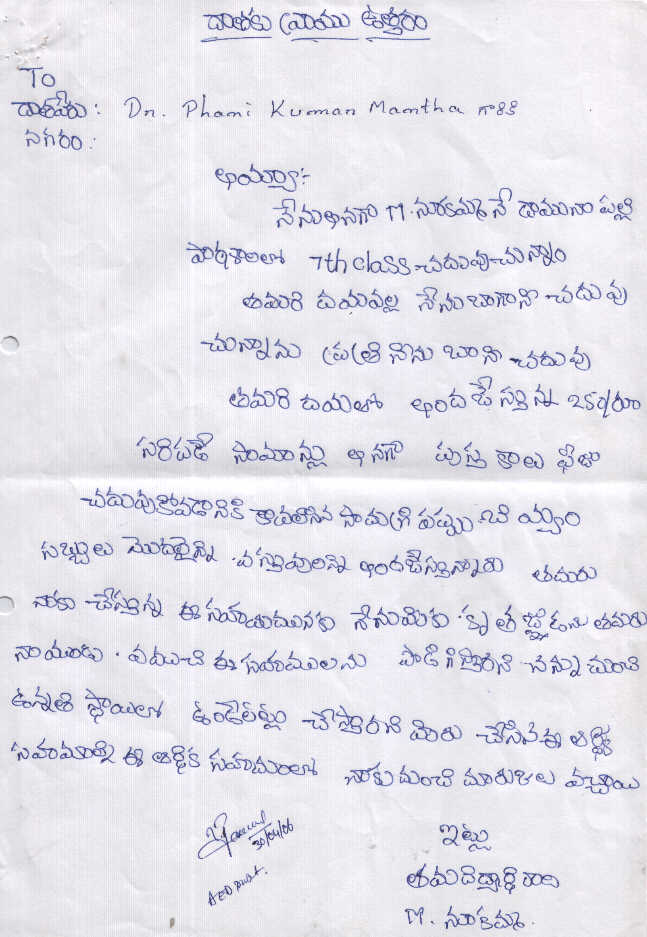 దాతకు వ్రాయు ఉత్తరం
To
దాతపేరు: Dr. Phani Kumar Mamtha గారికి
నగరం:
అయ్యా:-
నేను అనగా M. నూకమ్మ నే దామునా పల్లి
పాఠశాలలో 7th class చదువుచున్నాం
తమరి దయవల్ల నేను బాగాని చదువు
చున్నాను ప్రతి నాను బాని చదువు
తమరి దయలో అందచేస్తున్న 250/రూ
సరిపడే సామాన్లు అనగా పుస్తకాలు ఫీజు
చదువుకోవడానికి కావలసిన సామగ్రి పప్పు బియ్యం
సబ్బులు మొదలైన్ని వస్తువులన్ని అందచేస్తున్నారు తమరు
నాకు చేస్తున్న ఈ సహాయమునకు నేను మీకు కృతజ్ఞురాలను తమరు
నా యందు ఈ సహాములను పొడిగిస్తారని నన్ను మంచి
ఉన్నత స్థాయిలో ఉండేలట్లు చేస్తారని మీరు చేసిన ఈ ఆర్థిక
సహాయాన్ని ఈ ఆర్థిక సహాయంలో నాకు మంచి మారుజల వచ్చాయి
30/04/06
ఇట్లు
M. నూకమ్మ.